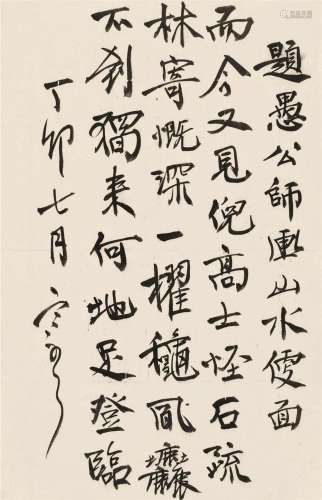 題愚公師山水便面
而今又見倪高士怪石疏
林寄慨深一櫂穐風塵
不到獨来何地足登臨
丁卯七月